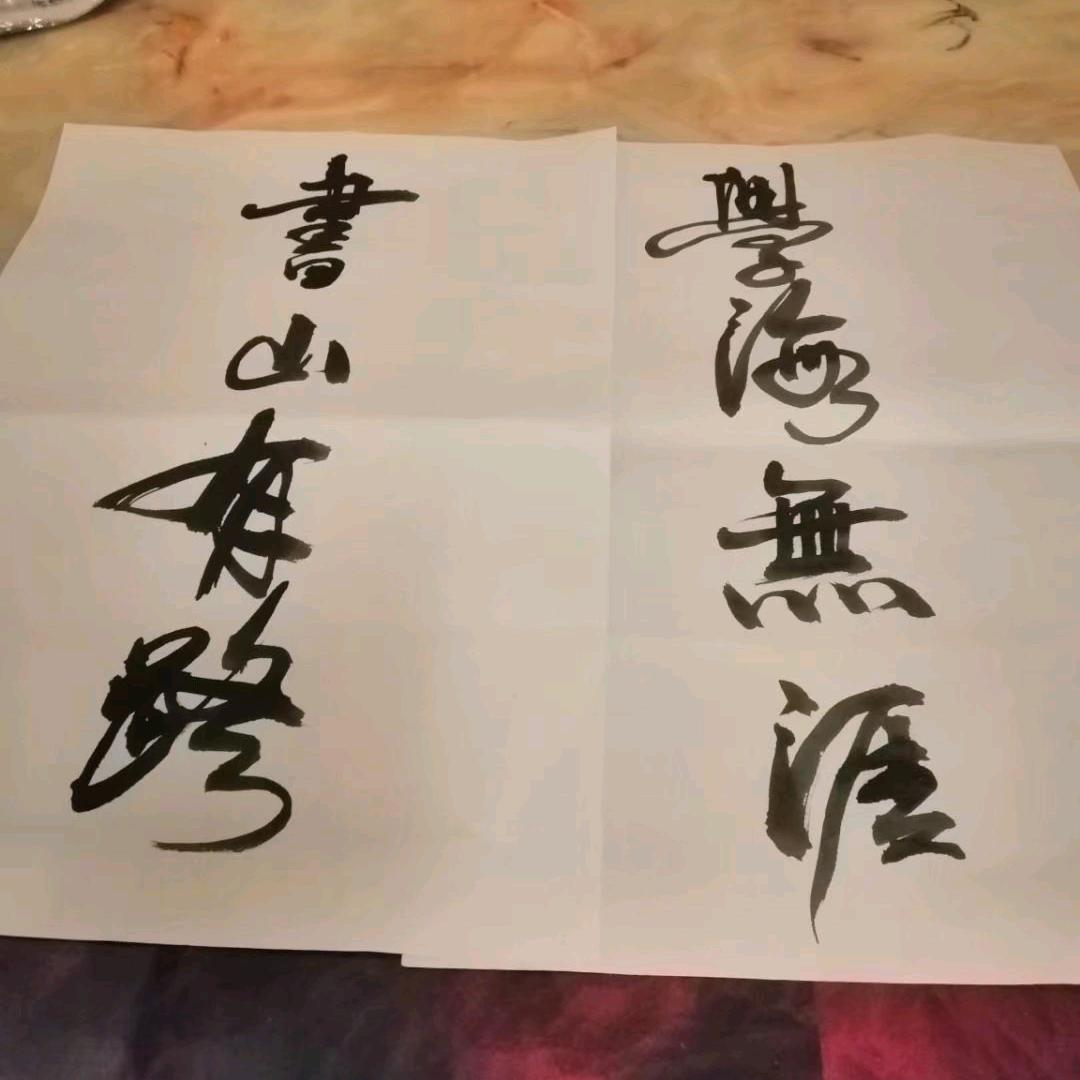 學海無涯
書山有路